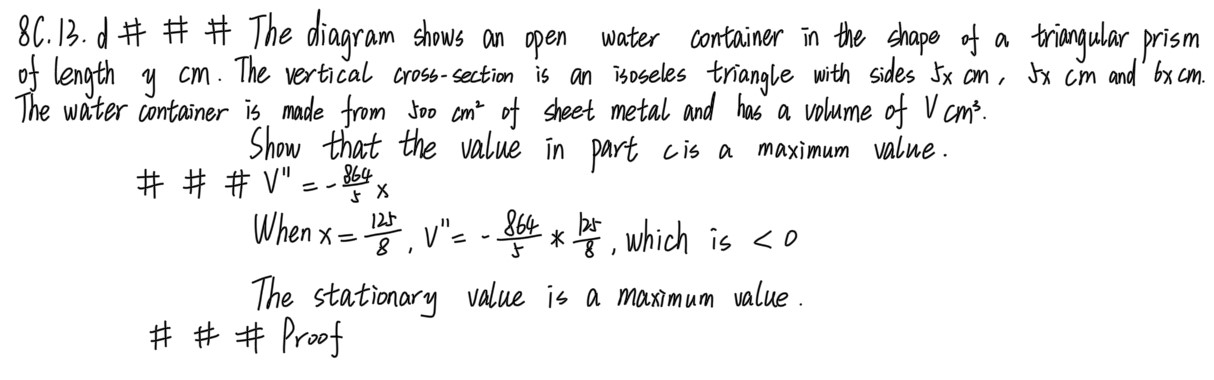 8C.13.d # # # The diagram shows an open water container in the shape of a triangular prism
of length y cm. The vertical cross-section is an isoseles triangle with sides 5x cm, 5x cm and 6x cm.
The water container is made from 500 cm² of sheet metal and has a volume of V cm³.
Show that the value in part c is a maximum value.
# # # V" = -864/5 x
When x = 125/8, V" = -864/5 * 125/8, which is < 0
The stationary value is a maximum value.
# # # Proof